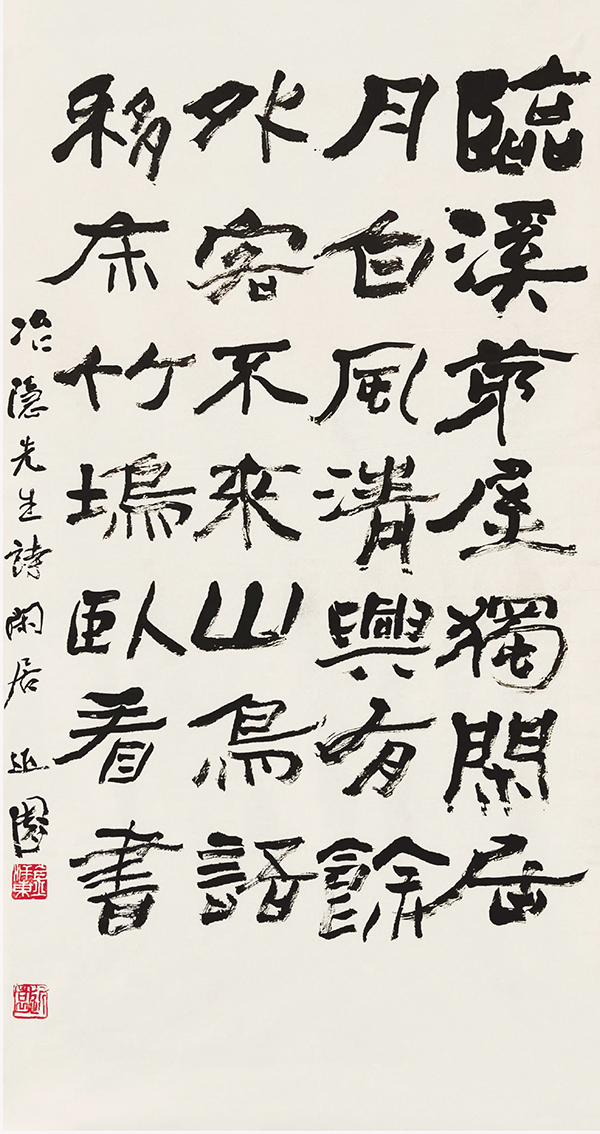 臨溪茅屋獨閑居
月白風清興有餘
外客不來山鳥語
移床竹塢臥看書
冶隱先生詩閑居